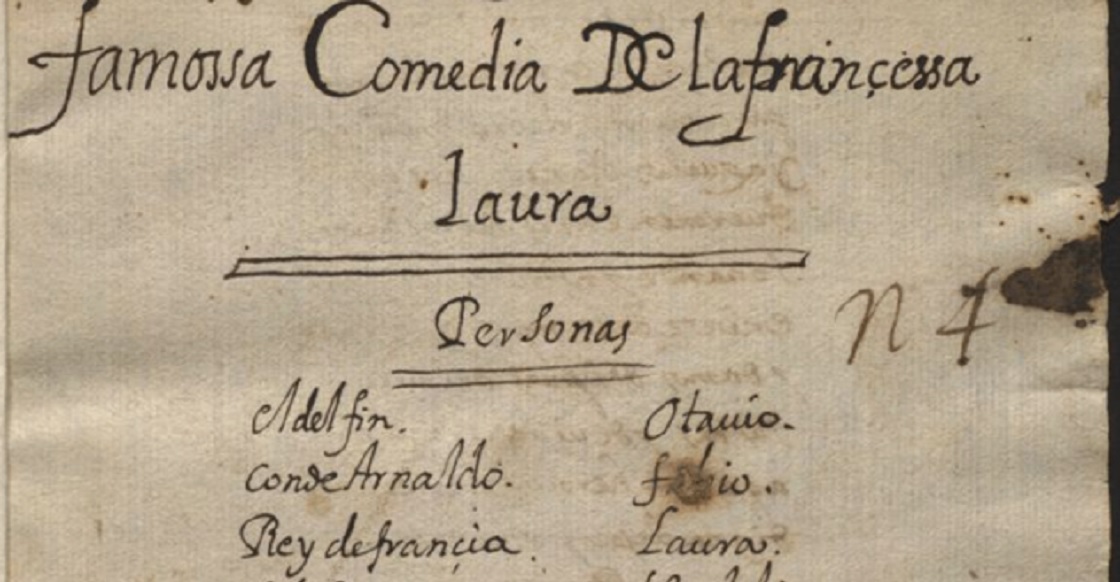 famossa Comedia De lafrançessa
Laura
Personas
N 4
el delfin. Otauio.
conde Arnaldo. fabio.
Rey de françia. Laura.